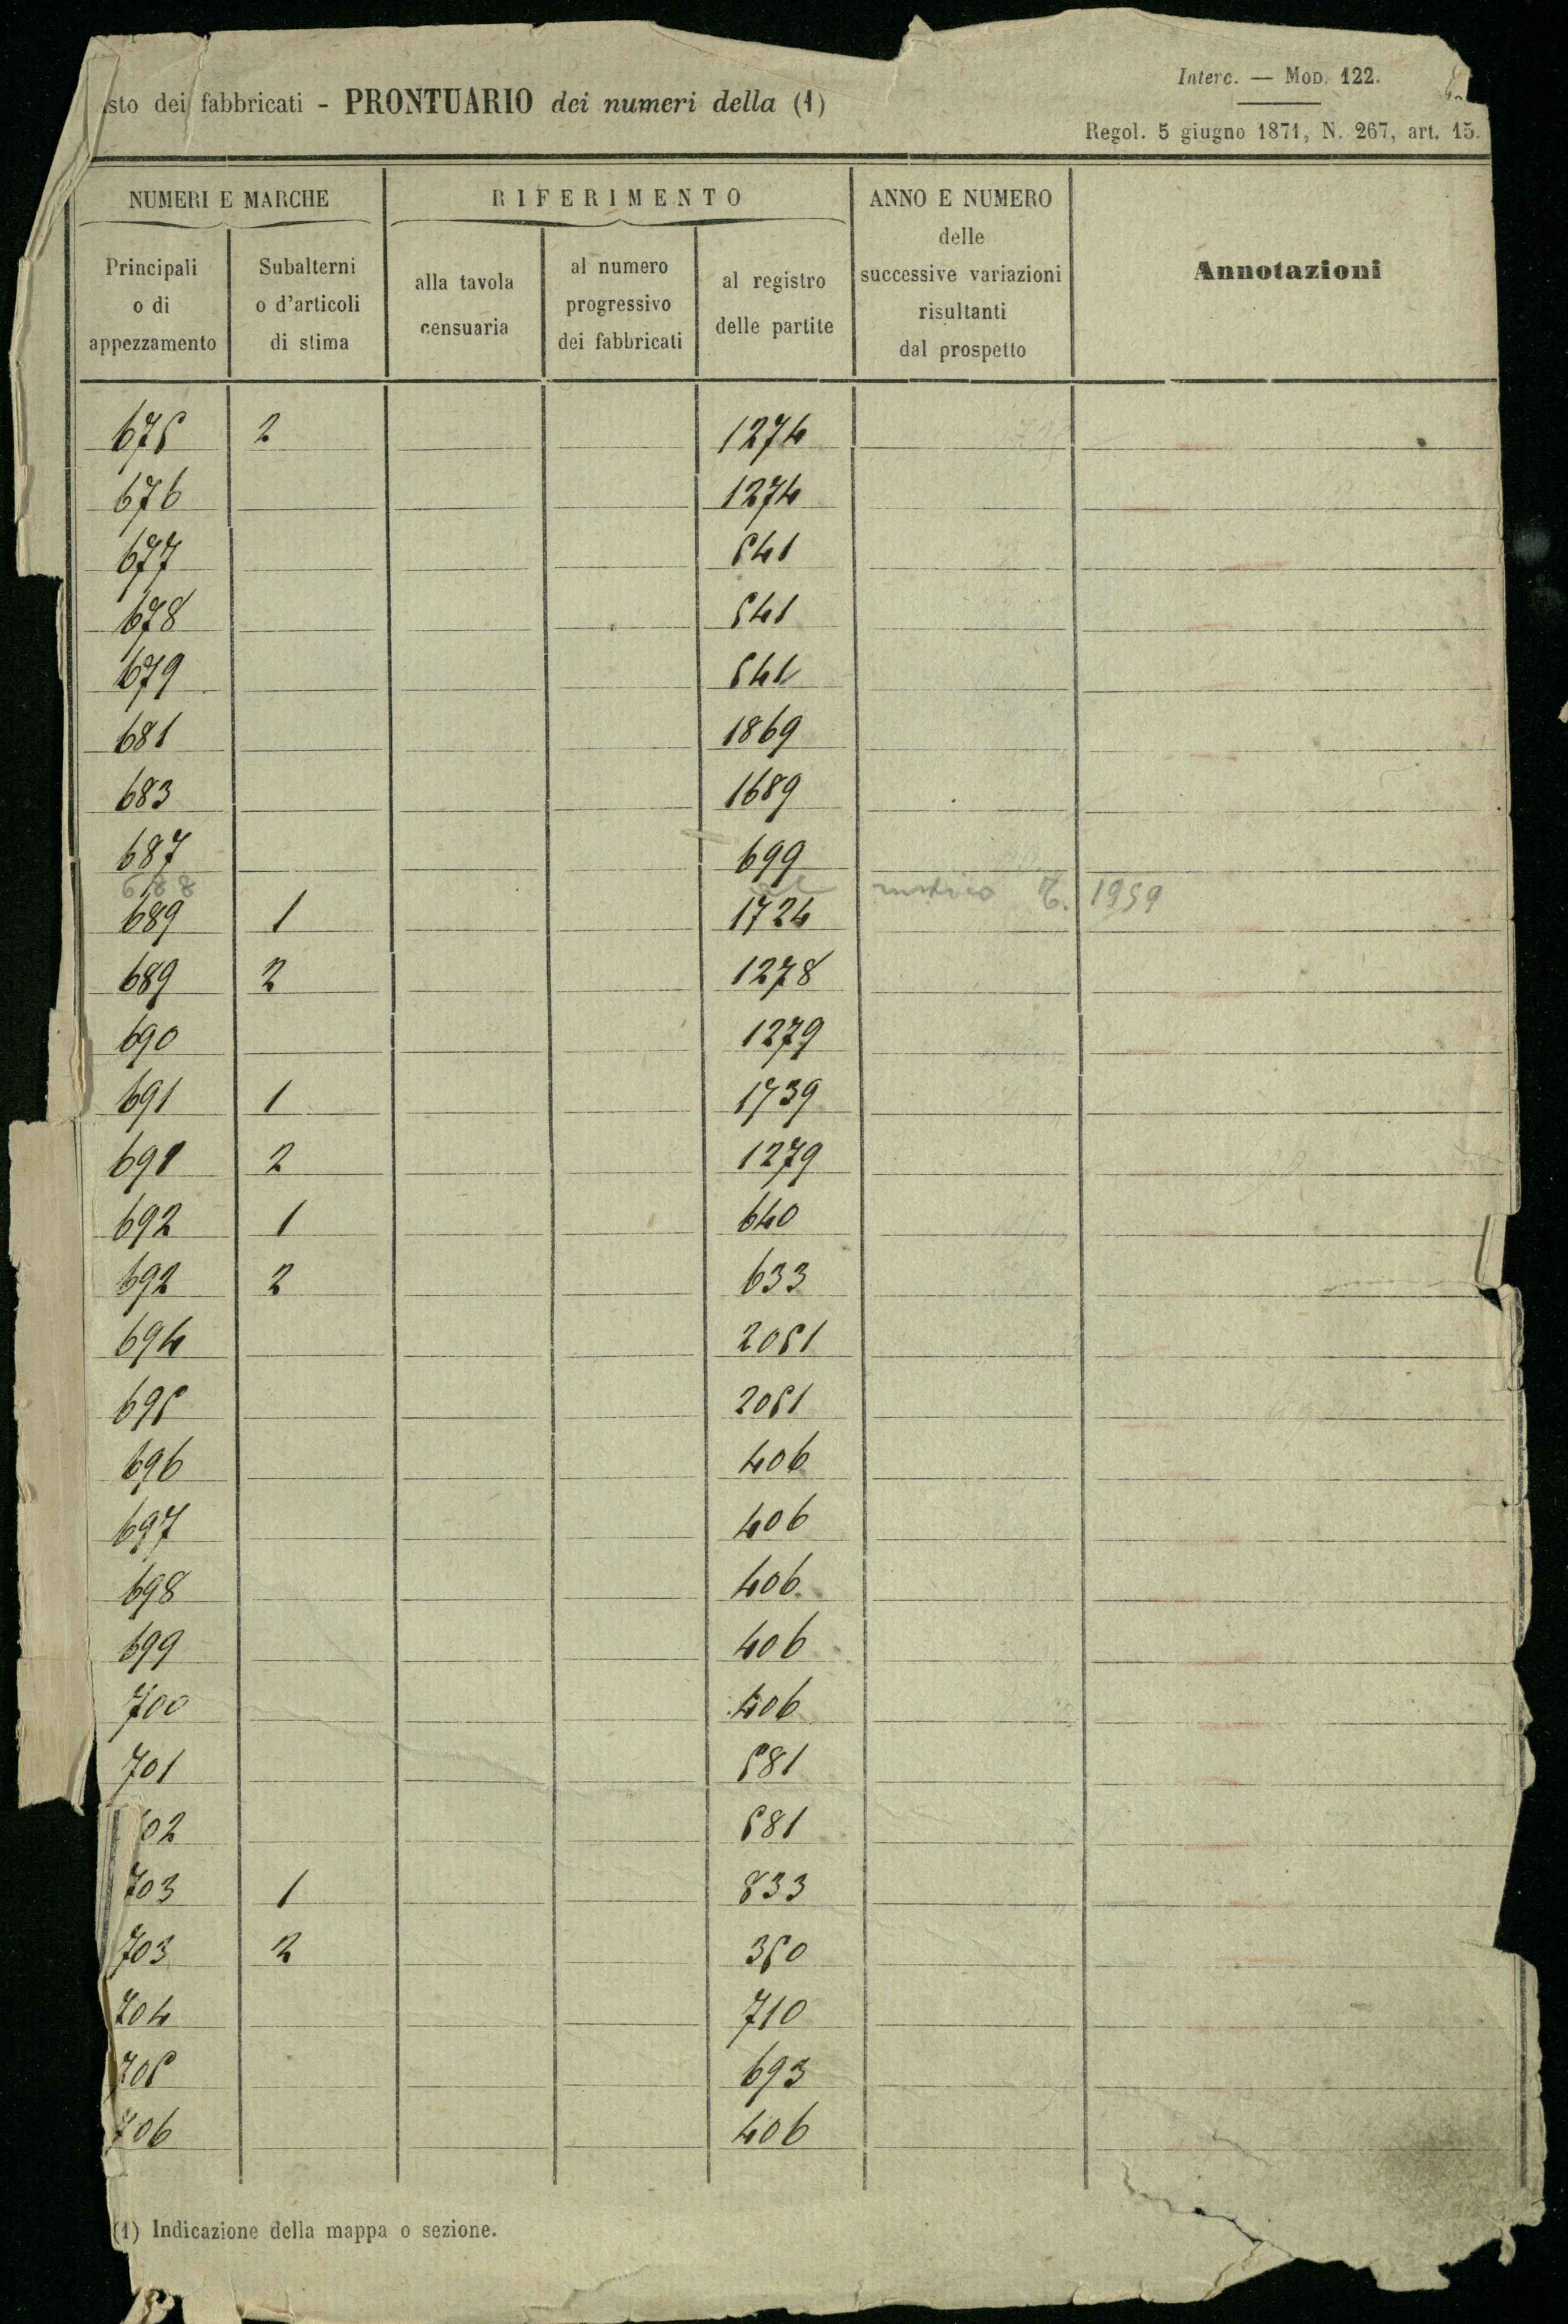 sto dei fabbricati - PRONTUARIO dei numeri della (1)
Interc. — Mod. 122.
Regol. 5 giugno 1871, N. 267, art. 15.
NUMERI E MARCHE
RIFERIMENTO
ANNO E NUMERO
delle
successive variazioni
risultanti
dal prospetto
Annotazioni
Principali
o di
appezzamento
Subalterni
o d'articoli
di stima
alla tavola
censuaria
al numero
progressivo
dei fabbricati
al registro
delle partite
675 2 1274
676 1274
677 541
678 541
679 541
681 1869
683 1689
687 699
688 al rustico T. 1959
689 1 1724
689 2 1278
690 1279
691 1 1739
691 2 1279
692 1 640
692 2 633
694 2051
695 2051
696 406
697 406
698 406
699 406
700 406
701 581
02 581
703 1 833
703 2 350
704 710
705 693
706 406
(1) Indicazione della mappa o sezione.